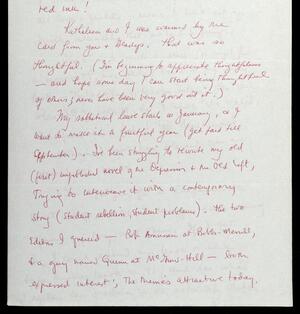 red ink!
Kathleen and I was warmed by the
card from you & Gladys. That was so
thoughtful. (I'm beginning to appreciate thoughtfulness
— and hope some day I can start being thoughtful
of others; never have been very good at it.)
My sabbatical leave starts in January, &amp; I
want to make it a fruitful year (get paid till
September). I've been struggling to rewrite my old
(first) unpublished novel of the Depression & the Old Left,
Trying to interweave it with a contemporary
story (student rebellion, student problems). The two
Editors I queried — Bob Amussen at Bobbs-Merrill,
& a guy named at McGraw-Hill — both
expressed interest; the theme's attractive today.